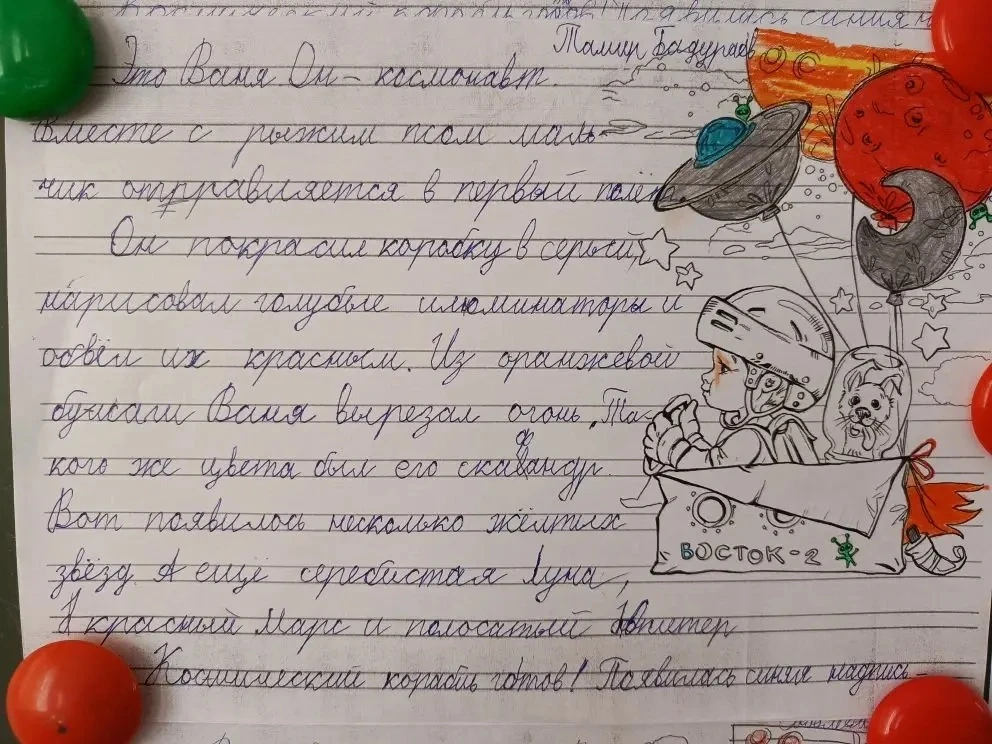 Космический корабль готов! Появилась синяя н
Тамир Бадураев
Это Ваня Он – космонавт.
Вместе с рыжим псом маль-
чик отпрравляется в первый полёт.
Он покрасил коробку в серый,
нарисовал голубые илюминаторы и
обвёл их красным. Из оранжевой
бумаги Ваня вырезал огонь. Та-
кого же цвета был его скафандр.
Вот появилось несколько жёлтых
звёзд. А ещё серебистая Луна,
красный Марс и полосатый Юпитер
Космический корабль готов! Появилась синяя надпись –
ВОСТОК-2